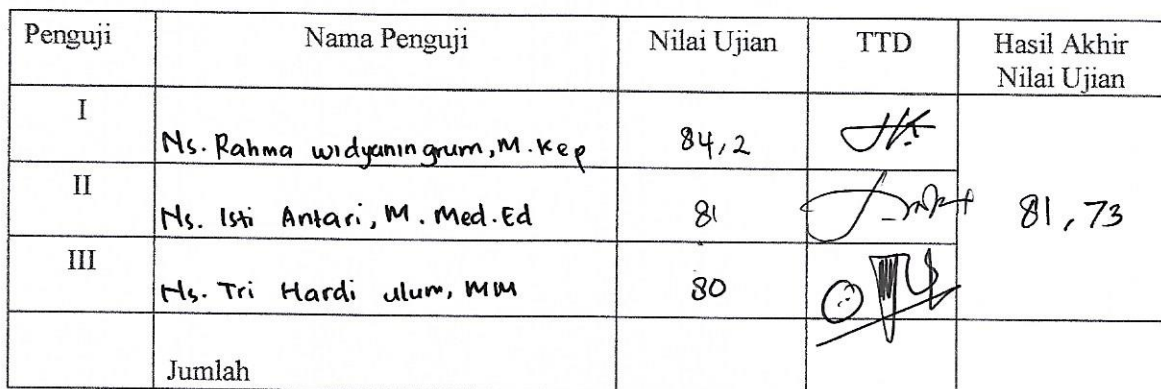 Penguji Nama Penguji Nilai Ujian TTD Hasil Akhir
Nilai Ujian
I
Ns. Rahma widyaningrum, M.Kep 84,2
II
Ns. Isti Antari, M. Med.Ed 81 81,73
III
Ns. Tri Hardi ulum, MM 80
Jumlah